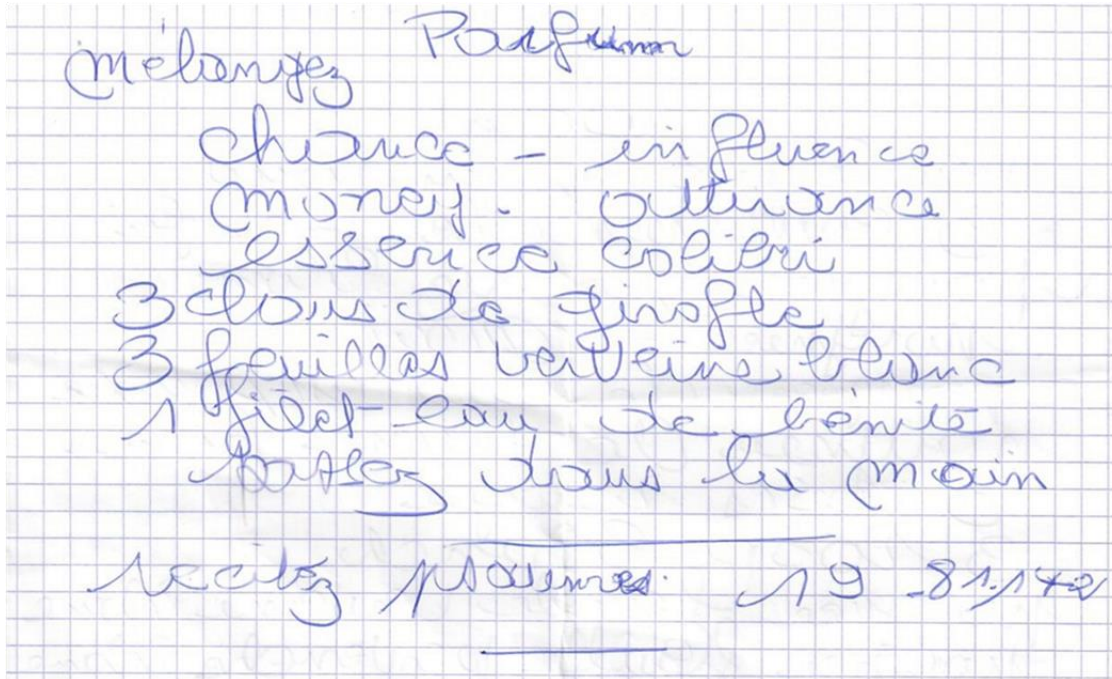 Parfum
mélangez
chance - influence
money. attirance
essence colibri
3 clous de girofle
3 feuilles verveine blanc
1 filet eau de bénite
dans la main
recitez psaumes. 19 - 81.142